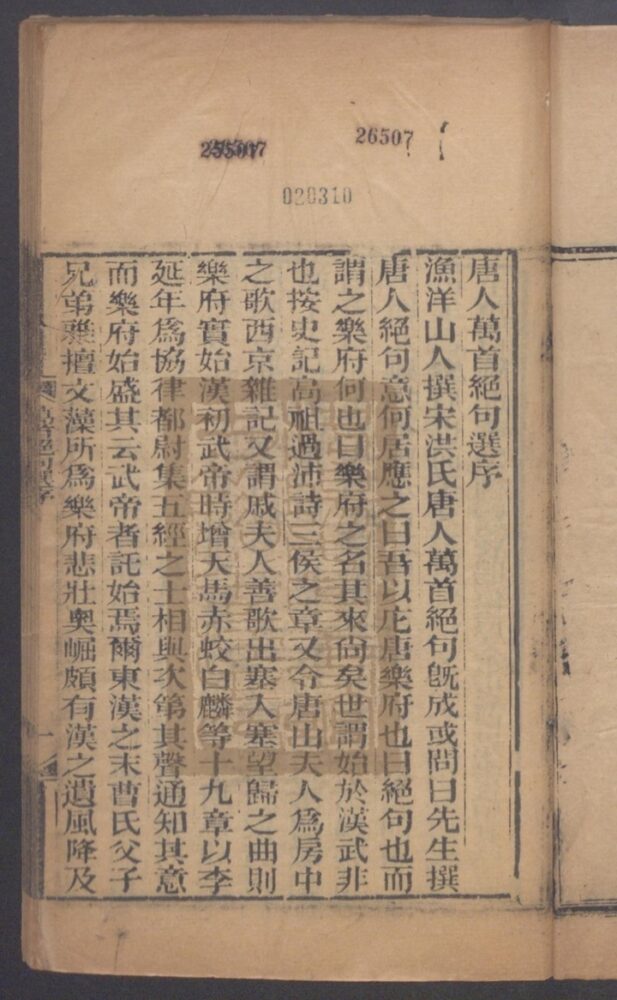 26507
020310
唐人萬首絕句選序
漁洋山人撰宋洪氏唐人萬首絕句旣成或問曰先生撰
唐人絕句意何居應之曰吾以庀唐樂府也曰絕句也而
謂之樂府何也曰樂府之名其來尙矣世謂始於漢武非
也按史記高祖過沛詩三侯之章又令唐山夫人爲房中
之歌西京雜記又謂戚夫人善歌出塞入塞望歸之曲則
樂府實始漢初武帝時增天馬赤蛟白麟等十九章以李
延年爲協律都尉集五經之士相與次第其聲通知其意
而樂府始盛其云武帝者託始焉爾東漢之末曹氏父子
兄弟雅擅文藻所爲樂府悲壯奧崛頗有漢之遺風降及